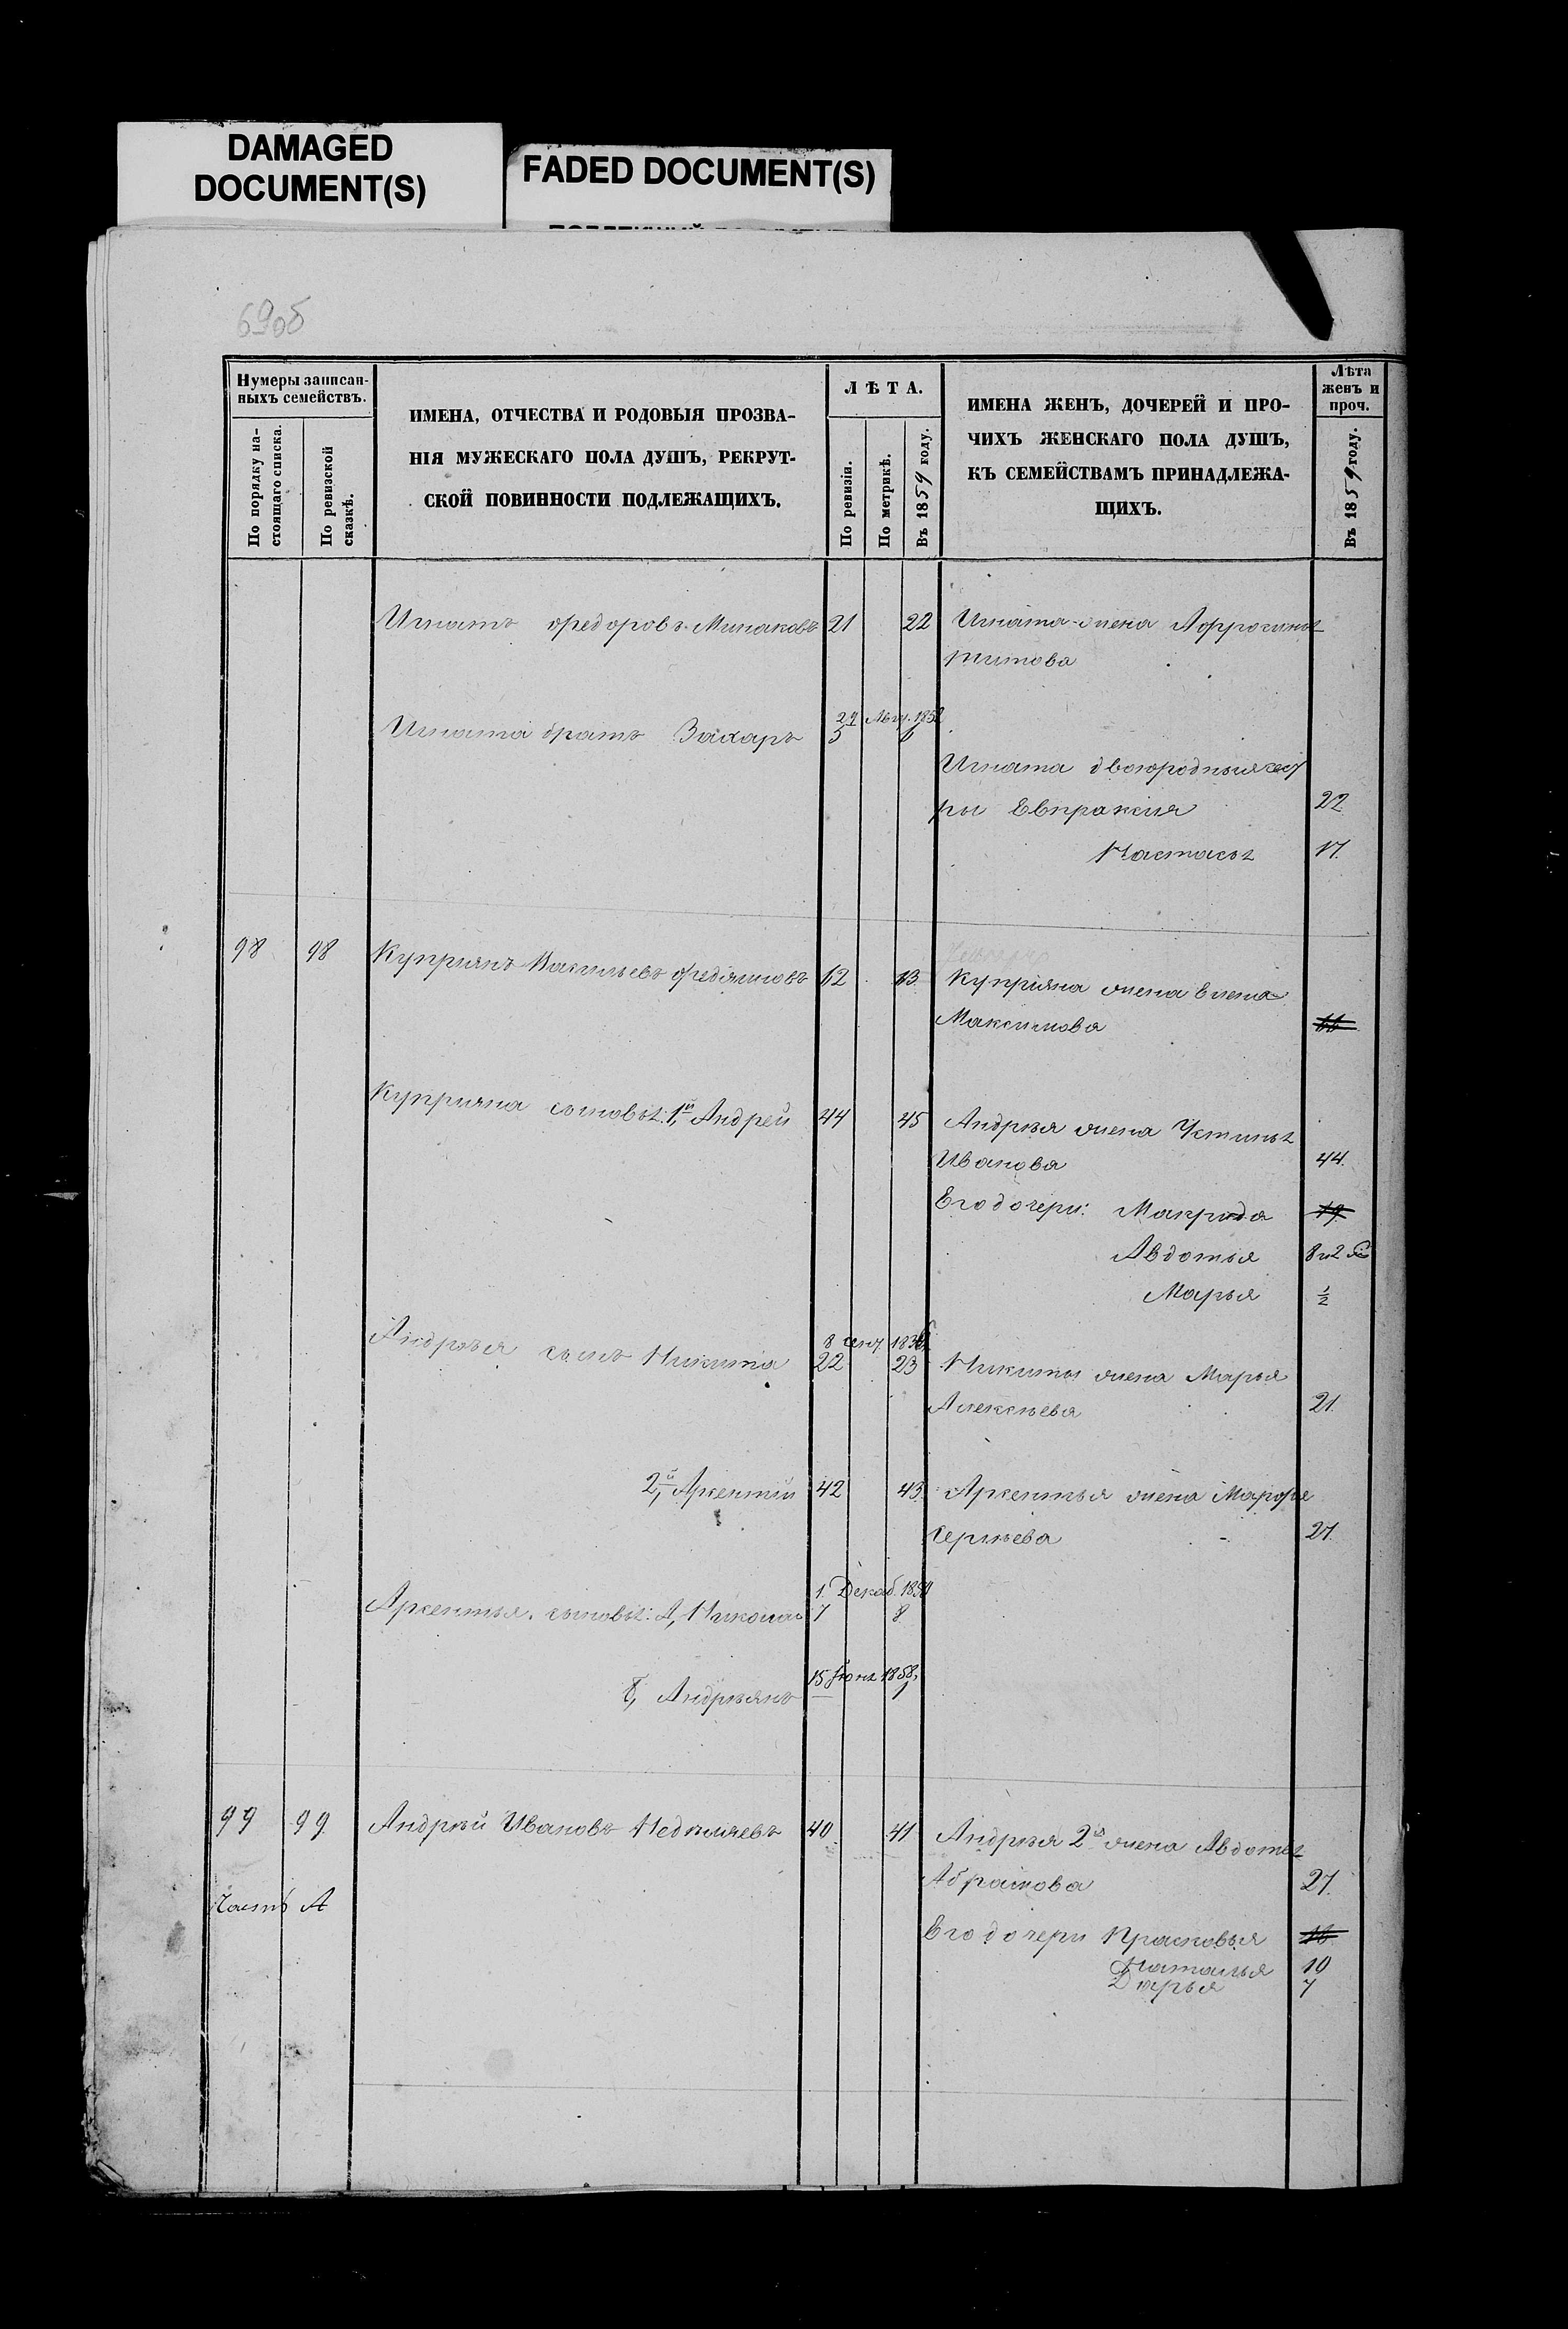 DAMAGED
DOCUMENT(S)
FADED DOCUMENT(S)
69об
Нумеры записан-
ныхъ семействъ.
По порядку на-
стоящаго списка.
По ревизской
сказкѣ.
ИМЕНА, ОТЧЕСТВА И РОДОВЫЯ ПРОЗВА-
НІЯ МУЖЕСКАГО ПОЛА ДУШЪ, РЕКРУТ-
СКОЙ ПОВИННОСТИ ПОДЛЕЖАЩИХЪ.
ЛѢТА.
По ревизіи.
По метрикѣ.
Въ 1859 году.
ИМЕНА ЖЕНЪ, ДОЧЕРЕЙ И ПРО-
ЧИХЪ ЖЕНСКАГО ПОЛА ДУШЪ,
КЪ СЕМЕЙСТВАМЪ ПРИНАДЛЕЖА-
ЩИХЪ.
Лѣта
женъ и
проч.
Въ 1859 году.
Игнатъ Федоровъ Минаковъ 21 22 Игната жена
Титова
Игната братъ Захаръ 5 6
Игната двоюродныя сест
ры Евпраксия 22
Настасья 17.
98 98 Куприянъ Васильевъ 62 63 Куприяна жена Елена
Максимова 66
Куприяна сыновья: 1й, Андрей 44 45 Андрѣя жена Устинья
Иванова 44.
Его дочери: Макрида 19
Авдотья
Марья ½
8 сент. 1836
Андрѣя сынъ Никита 22 23 Никиты жена Марья
Алексѣева 21.
2й, Арсентий 42 43. Арсентья жена Марфа
Сергѣева 27.
1. Декаб. 1850
Арсентья сыновья: А, Николай 7 8
15 Июня 1858.
Б, Андрѣянъ — 1
99 99 Андрѣй Ивановъ Недѣляевъ 40 41 Андрѣя 2я жена Авдотья
Абрамова 27.
Часть А
Его дочери Прасковья 16
Наталья 10
Дарья 7